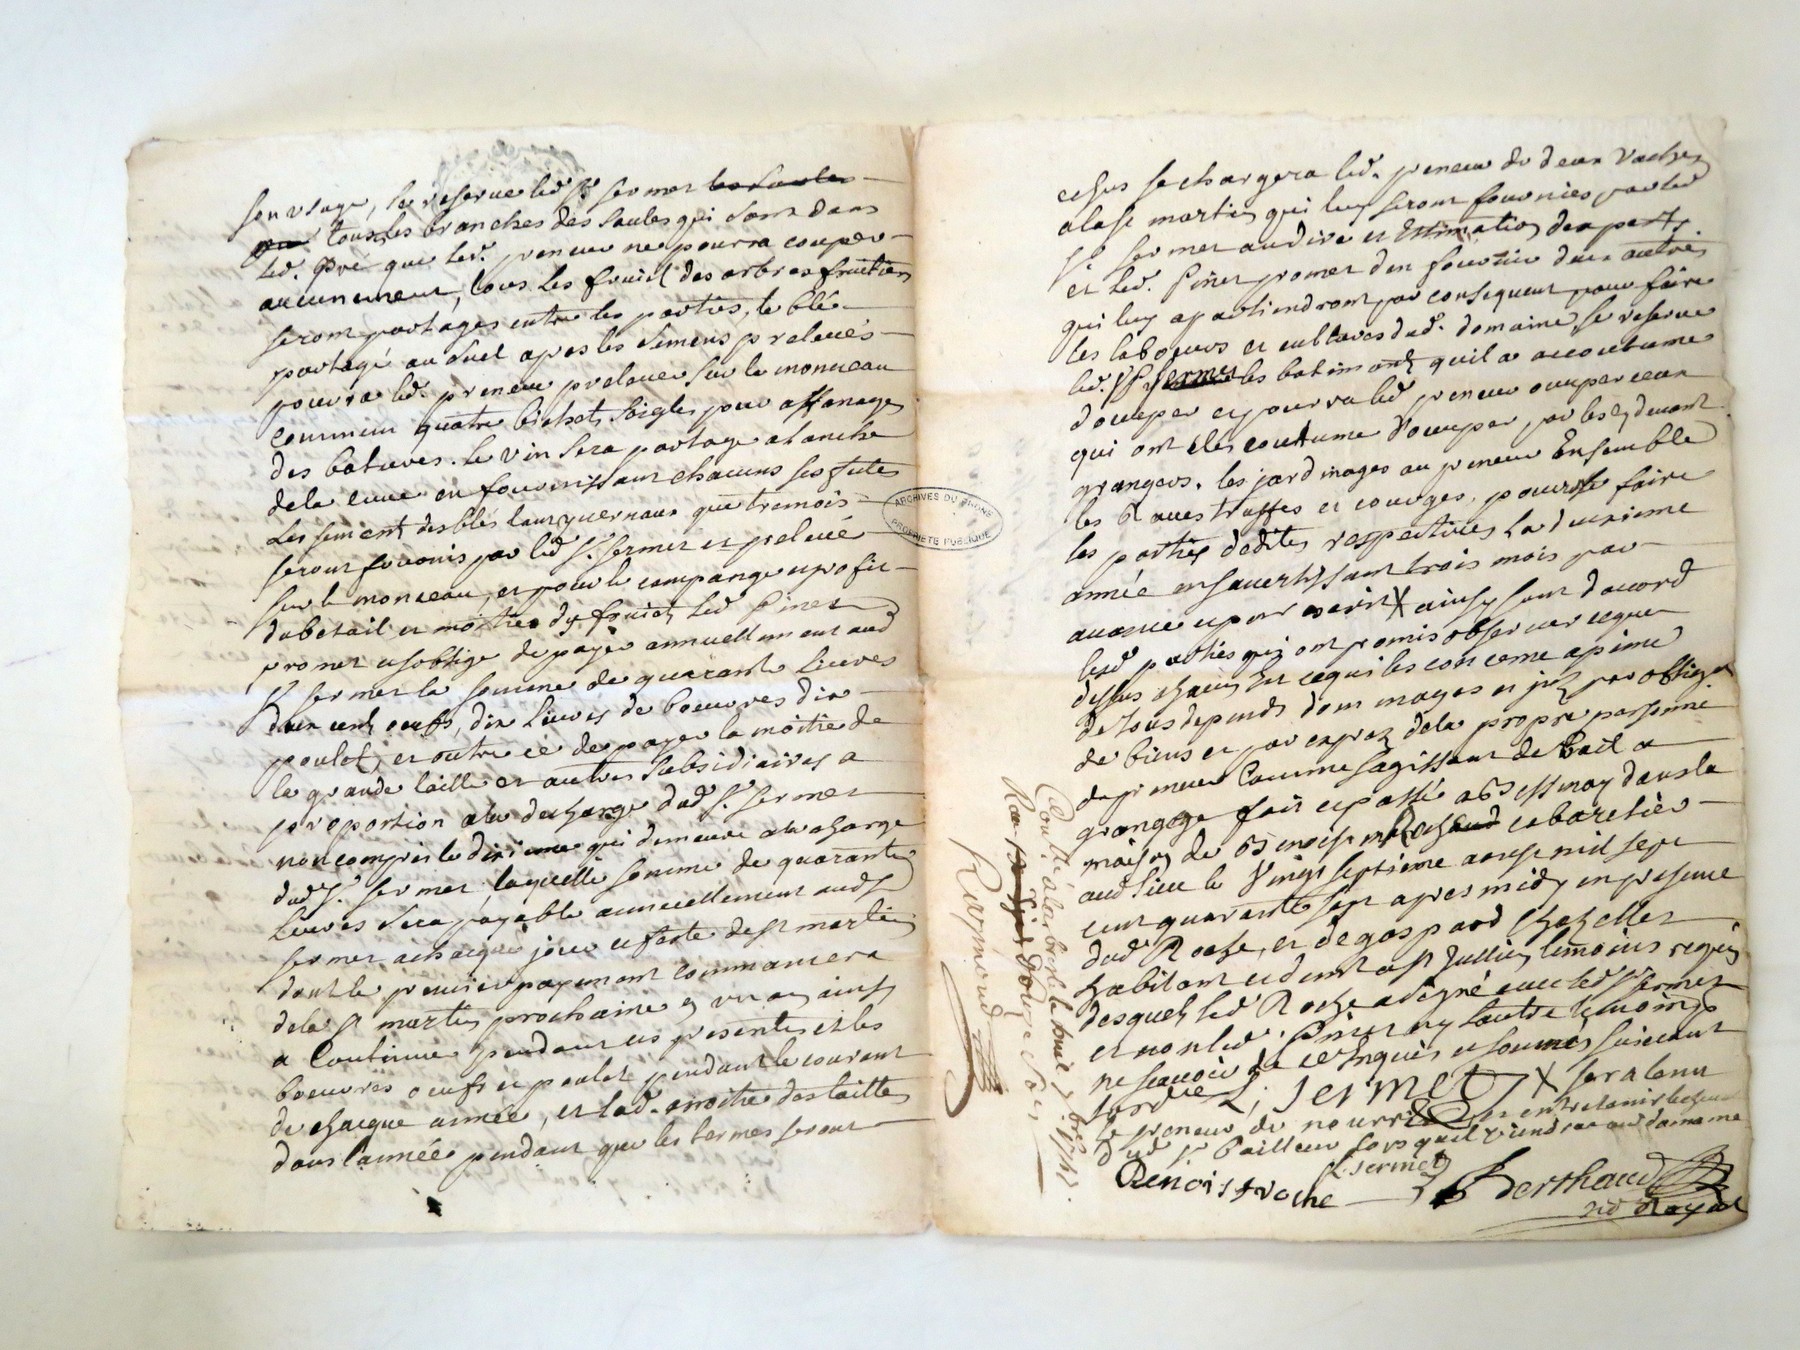 son usage, se reserve led. Sr. Sermet les saules
que tous les branches des saules qui sont dans
led. Pré que led. preneur ne pourra couper
aucunement, tous les fruict des arbres fruitiers
seront partages entre les parties, le blé
partagé au suel apres les semens prelevés
pourra led. preneur prelever sur le monceau
commun quatre bichets soigle pour affanages
des batures. le vin sera partage a lanche
dela cuve en fournissant chacuns ses futes
les sement des blés tant yvernaux que tremois
seront fournis par led Sr. Sermet et prelevé
sur le monceau, et pour le compange et profit
du betail et moitie dy fruict led Pinet
promet et soblige de payé annuellement aud
Sr Sermet la somme de quarante livres
deux cents oeufs, dix livres de beurres dix
poulet, et outre ce de payer la moitie de
la grande taille et autres subsidiaires a
proportion a la decharge dud Sr. Sermet
non compris le dixieme qui demeure a la charge
dud Sr. Sermet, laquelle somme de quarante
livres sera payable annuellement aud Sr
Sermet a chaque jour et feste de St martin
dont le premier payement commancera
dela St martin prochaine en un an ainsy
a continuer pendant ces presentes et les
beurres oeufs et poulet pendant le courant
de chaque année, et lad. moitie des tailles
dans lannée pendant que les termes seront
ARCHIVES DU RHONE
PROPRIETE PUBLIQUE
echus se chargera led. preneur de deux vaches
a la St martin qui luy seront fournies par led
Sr Sermet au dire et Estimation dexperts
et led. Pinet promet den fournir deux autres
qui luy apartiendront par consequent pour faire
les labours et cultures dud. domaine, se reserve
led. Sr Sermet les batiments quil a accoutume
doccuper et pourra led preneur occuper ceux
qui ont etes coutume d'occuper par les cy devant
grangers. les jardinages au preneur Ensemble
les Raves truffes et courges. pourront se faire
les parties dedites respectives la deuxieme
année en savertissant trois mois par
avance et par ecrit X ainsy sont d'accord
lesd parties qui ont promis observer ce que
dessus chacun en ce qui les concerne a peine
de tous depends dommages et jnts par obligation
de biens et par exprez de la propre personne
du preneur Comme sagissant de Bail a
grangage fait et passé a Bessenay dans la
maison de Benoist Roche cabaretier
aud lieu le Vingt septieme aoust mil sept
cent quarante sept apres midy en presence
dud Roche, et de gaspard Chazelles
habitant et demt a St Jullien temoins requis
desquels led Roche a signé avec led Sr Sermet
et non led. Pinet ny lautre temoins
ne scavoir de ce Enquis et sommés suivant
lordce L. Sermet X sera tenu
le preneur de nourrir et entretenir le cheval
dud Sr Bailleur lors quil viendra aud domaine
L. Sermet
Benoist roche
Berthaud
not Royal
Conllé a larbresle le trois 7bre 1747.
Recu douze sols
Raymond